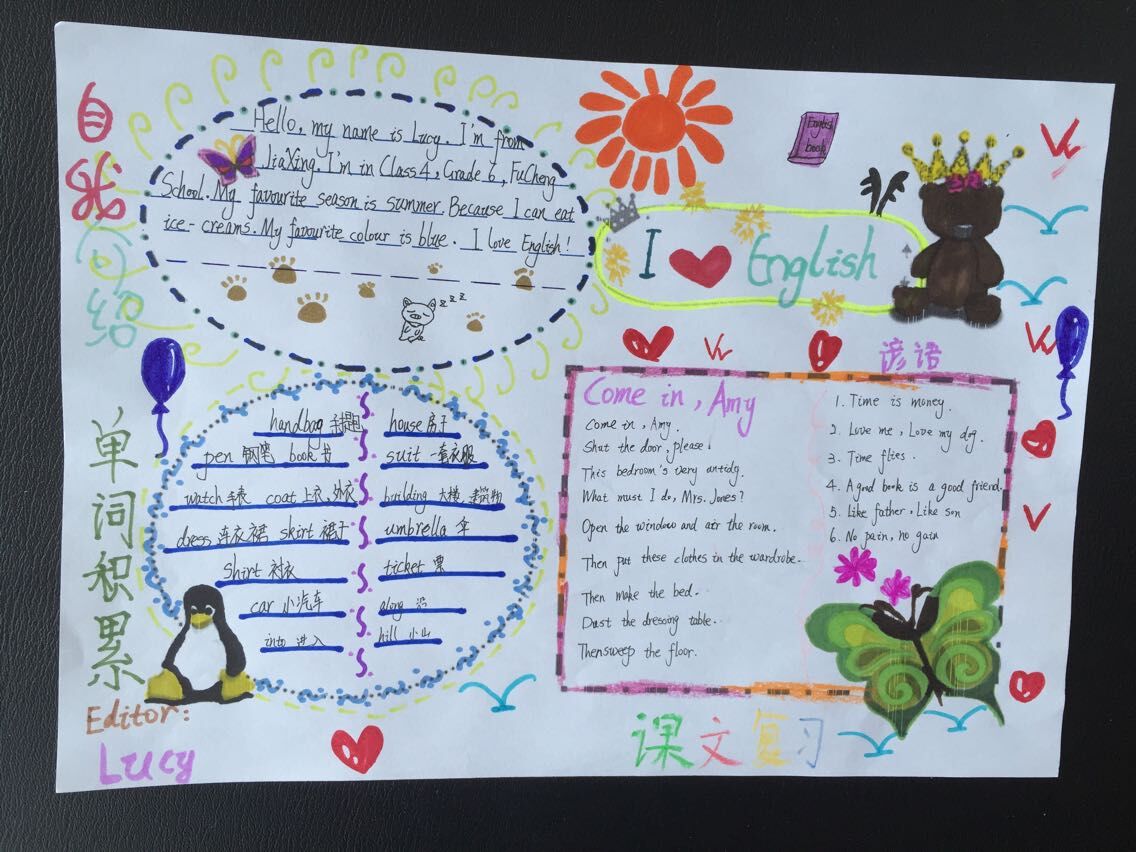 自我介绍
Hello, my name is Lucy. I'm from
JiaXing. I'm in Class 4, Grade 6, FuCheng
School. My favourite season is summer. Because I can eat
ice-creams. My favourite colour is blue. I love English!
z z z
English
book
I English
单词积累
handbag 手提包
pen 钢笔 book 书
watch 手表 coat 上衣,外衣
dress 连衣裙 skirt 裙子
shirt 衬衣
car 小汽车
into 进入
house 房子
suit 一套衣服
building 大楼,建筑物
umbrella 伞
ticket 票
along 沿
hill 小山
Editor:
Lucy
Come in, Amy
Come in, Amy.
Shut the door, please!
This bedroom's very antidy.
What must I do, Mrs. Jones?
Open the window and air the room.
Then put these clothes in the wardrobe.
Then make the bed.
Dust the dressing table.
Then sweep the floor.
谚语
1. Time is money.
2. Love me, Love my dog.
3. Time flies.
4. A good book is a good friend.
5. Like father, Like son
6. No pain, no gain
课文复习